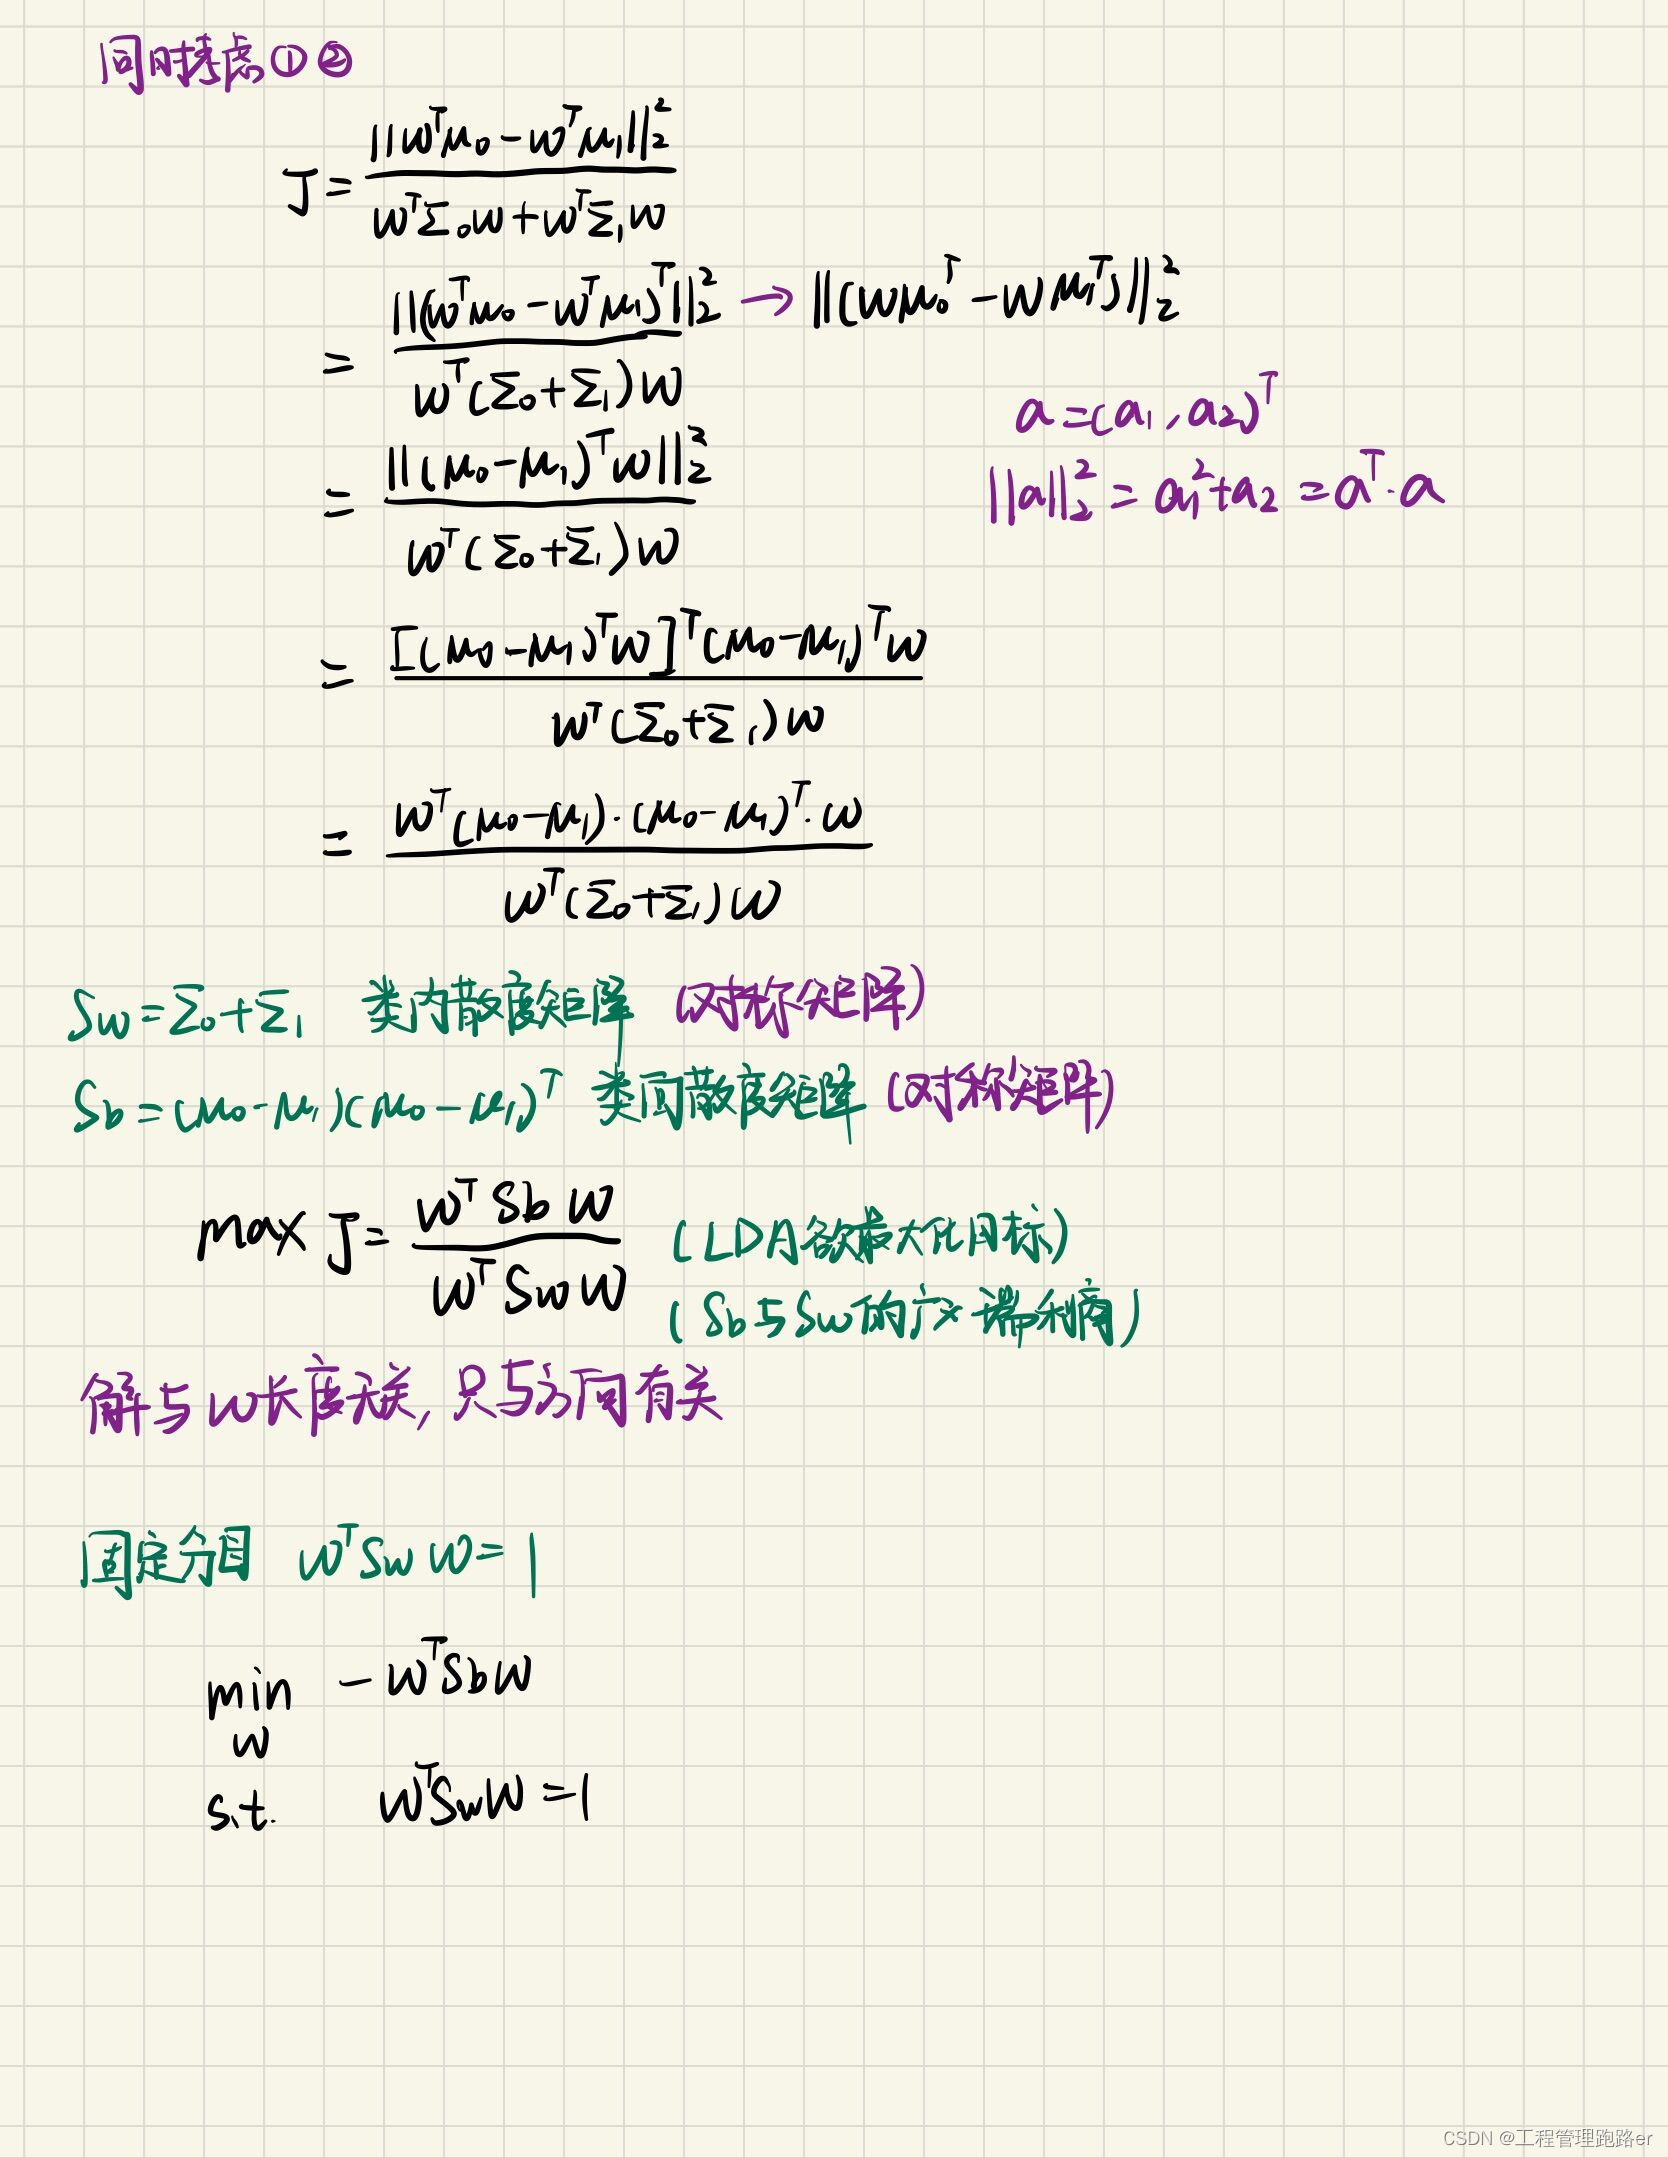 同时考虑①②
J = ||wᵀμ₀ - wᵀμ₁||₂² / (wᵀΣ₀w + wᵀΣ₁w)
= ||(wᵀμ₀ - wᵀμ₁)ᵀ||₂² / (wᵀ(Σ₀+Σ₁)w) → ||(wμ₀ᵀ - wμ₁ᵀ)||₂²
a = (a₁, a₂)ᵀ
= ||(μ₀-μ₁)ᵀw||₂² / (wᵀ(Σ₀+Σ₁)w)
||a||₂² = a₁²+a₂ = aᵀ·a
= [(μ₀-μ₁)ᵀw]ᵀ(μ₀-μ₁)ᵀw / (wᵀ(Σ₀+Σ₁)w)
= wᵀ(μ₀-μ₁)·(μ₀-μ₁)ᵀ·w / (wᵀ(Σ₀+Σ₁)w)
Sw=Σ₀+Σ₁ 类内散度矩阵 (对称矩阵)
Sb=(μ₀-μ₁)(μ₀-μ₁)ᵀ 类间散度矩阵 (对称矩阵)
max J = wᵀSbw / wᵀSww (LDA欲最大化目标)
(Sb与Sw的广义瑞利商)
解与w长度无关, 只与方向有关
固定分母 wᵀSww=1
min -wᵀSbw
w
s.t. wᵀSww=1
CSDN @工程管理跑路er